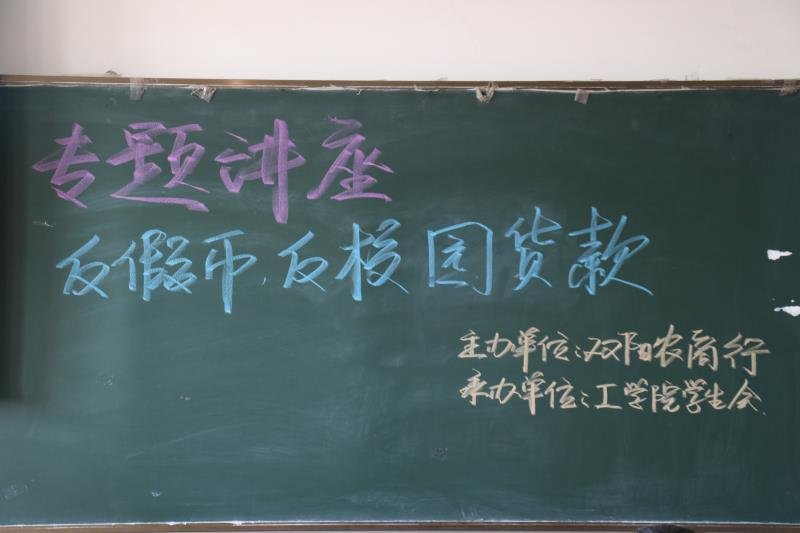 专题讲座
反假币,反校园货款
主办单位:双阳农商行
承办单位:工学院学生会